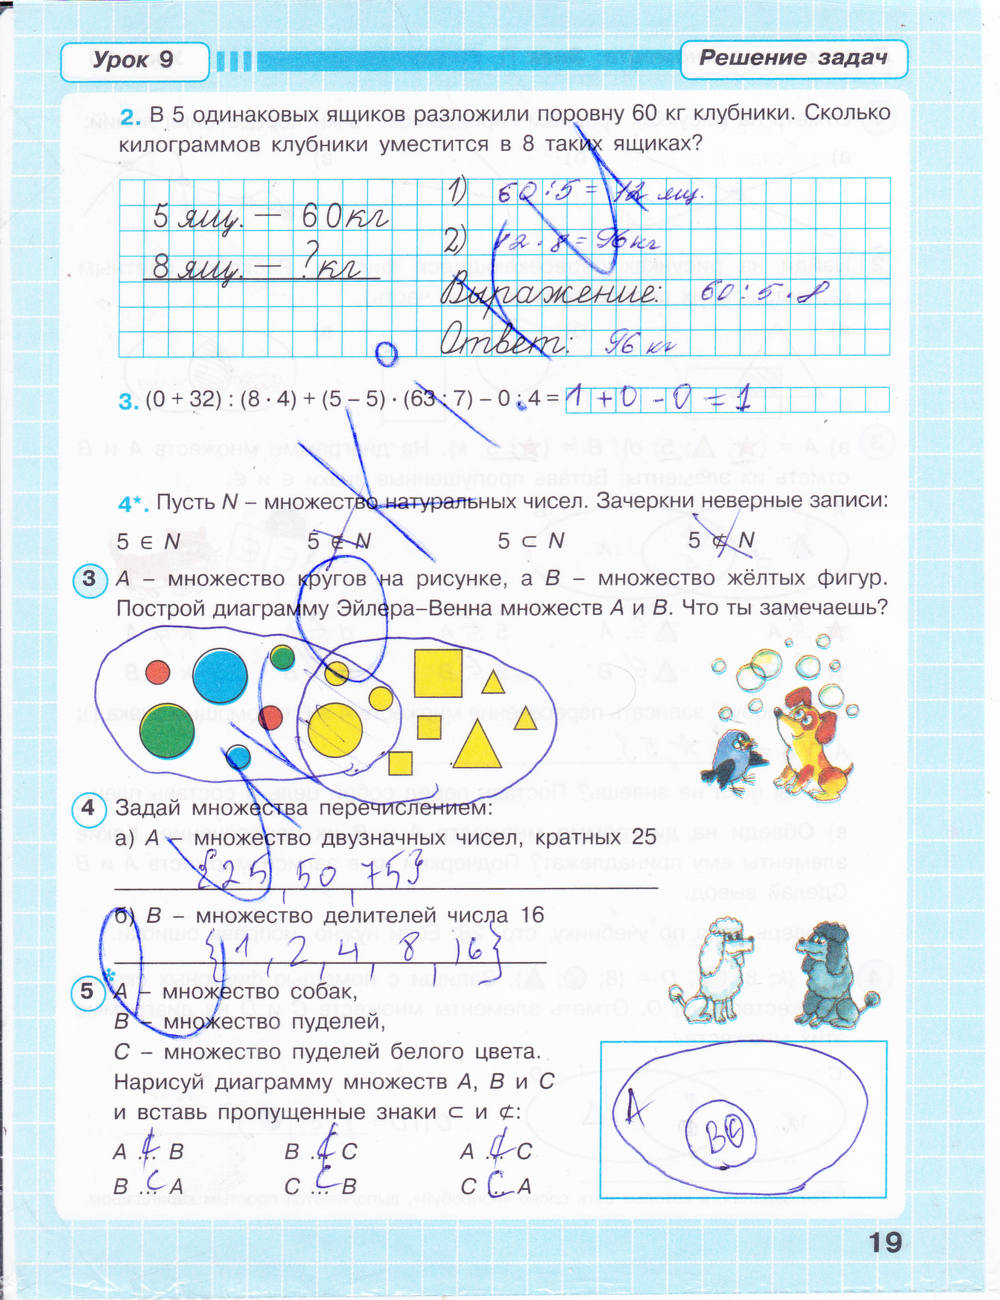 Урок 9
Решение задач
2. В 5 одинаковых ящиков разложили поровну 60 кг клубники. Сколько
килограммов клубники уместится в 8 таких ящиках?
5 ящ. — 60 кг
8 ящ. — ? кг
1) 60 : 5 = 12 ящ.
2) 12 · 8 = 96 кг
Выражение: 60 : 5 · 8
Ответ: 96 кг
3. (0 + 32) : (8 · 4) + (5 – 5) · (63 : 7) – 0 : 4 = 1 + 0 - 0 = 1
4*. Пусть N – множество натуральных чисел. Зачеркни неверные записи:
5 ∈ N 5 ∉ N 5 ⊂ N 5 ⊄ N
3 A – множество кругов на рисунке, а B – множество жёлтых фигур.
Построй диаграмму Эйлера–Венна множеств A и B. Что ты замечаешь?
4 Задай множества перечислением:
а) A – множество двузначных чисел, кратных 25
{25, 50, 75}
б) B – множество делителей числа 16
{1, 2, 4, 8, 16}
5* A – множество собак,
B – множество пуделей,
C – множество пуделей белого цвета.
Нарисуй диаграмму множеств A, B и C
и вставь пропущенные знаки ⊂ и ⊄:
A ⊄ B B ⊄ C A ⊄ C
B ⊂ A C ⊂ B C ⊂ A
A
B C
19